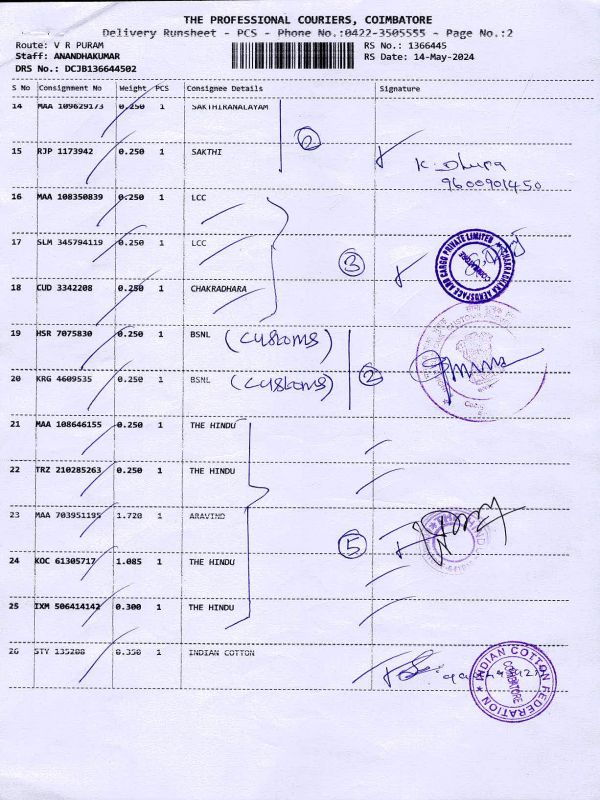 THE PROFESSIONAL COURIERS, COIMBATORE
Delivery Runsheet - PCS - Phone No.:0422-3505555 ~ Page No.:2
Route: V R PURAM RS No.: 1366445
Staff: ANANDHAKUMAR RS Date: 14-May-2024
DRS No.: DCJB136644502
S No Consignment No Weight PCS Consignee Details Signature
14 MAA 109629173 0.250 1 SAKTHIRANALAYAM
2
15 RJP 1173942 0.250 1 SAKTHI
9600901450
16 MAA 108350839 0.250 1 LCC
17 SLM 345794119 0.250 1 LCC
3
CHAKRADHARA AEROSPACE AND CARGO PRIVATE LIMITED
18 CUD 3342208 0.250 1 CHAKRADHARA
19 HSR 7075830 0.250 1 BSNL (customs)
2
20 KRG 4609535 0.250 1 BSNL (customs)
21 MAA 108646155 0.250 1 THE HINDU
22 TRZ 210285263 0.250 1 THE HINDU
23 MAA 703951195 1.720 1 ARAVIND
5
24 KOC 61305717 1.085 1 THE HINDU
25 IXM 506414142 0.300 1 THE HINDU
26 STY 135208 0.350 1 INDIAN COTTON
INDIAN COTTON FEDERATION
COIMBATORE